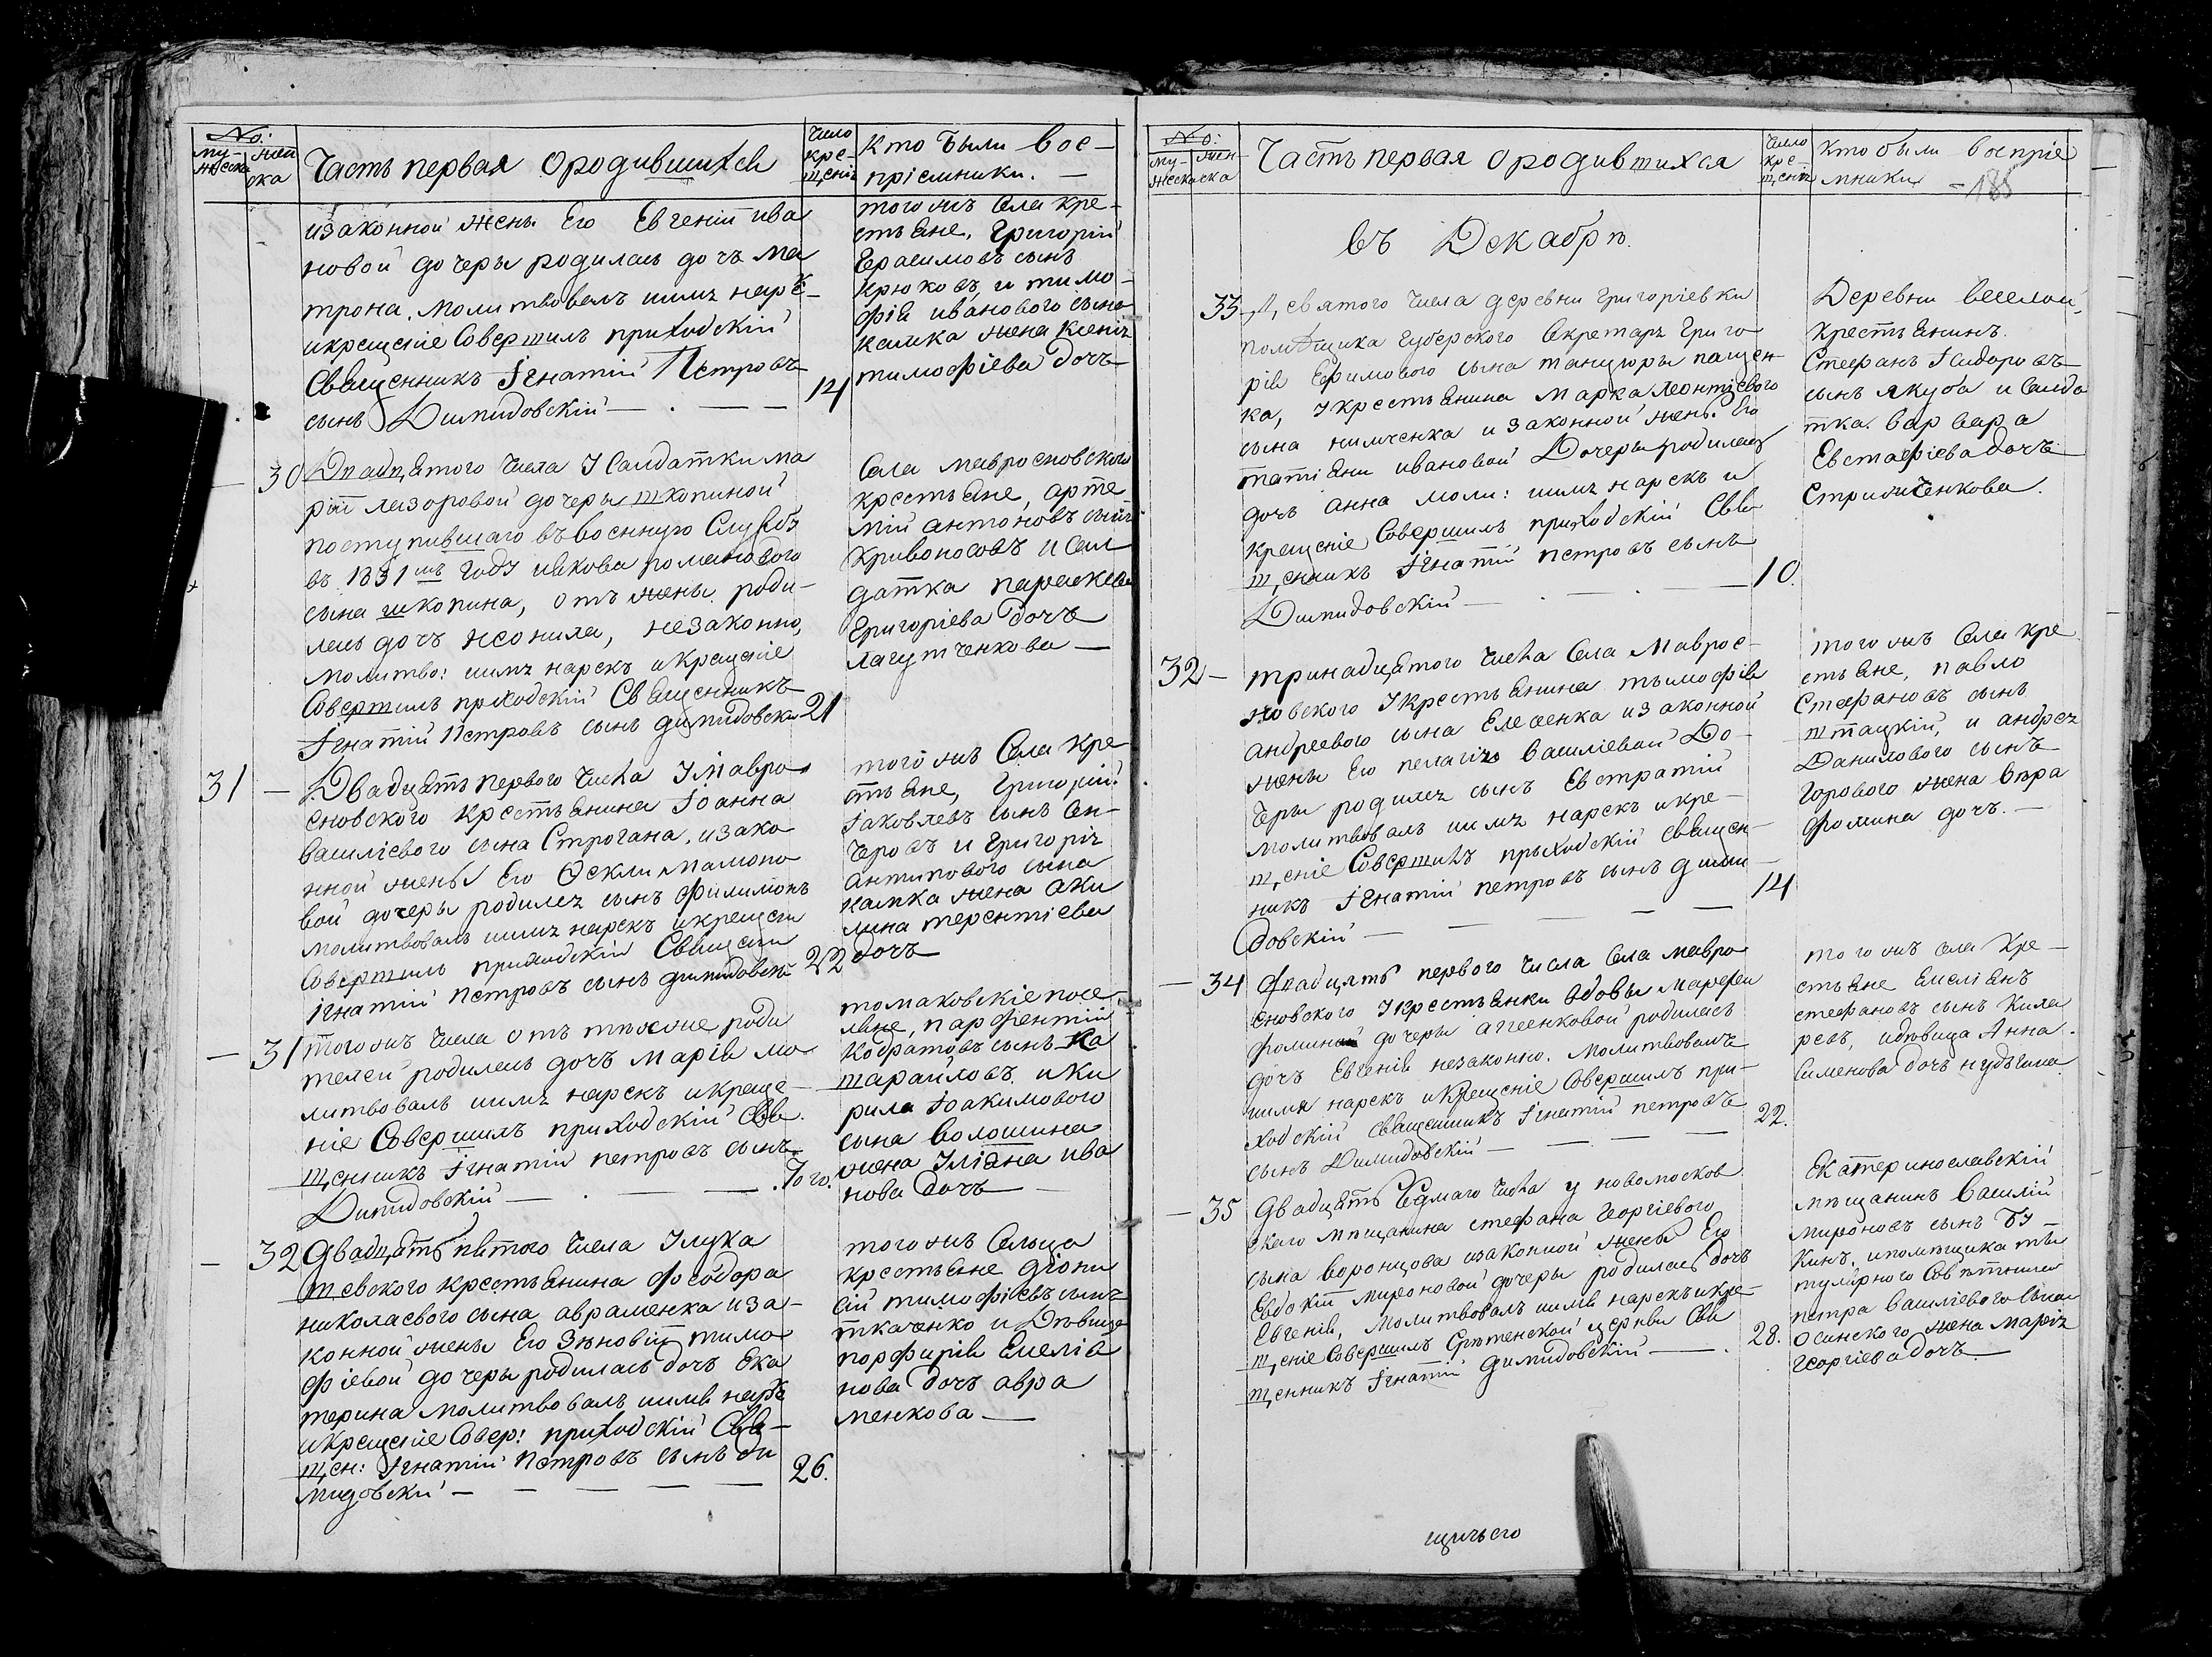 No:
му-
жеска
жен
ска
Часть первая о родившихся
Число
кре-
щенія
Кто были вос-
пріемники. —
изаконной жены Его Евгеніи ива
новой дочеры родилась дочъ ма
трона, молитвовалъ имя нарѣк-
икрещеніе Совершилъ приходскій
Священникъ Ігнатій Петровъ
сынъ Димидовскій — . — —
14
того жъ Села кре-
стьяне, Григорій
Герасимовъ сынъ
Крюковъ, и тимо-
фія иванового сына
калика жена Ксенія
тимофіева дочъ
— 30
Двадцятого числа У Салдатки ма
ріи лазоровой дочеры шкопиной
поступившаго въ военную Службу
въ 1831мъ году иякова романового
сына шкопина, отъ жены роди-
лась дочъ неонила, незаконно,
Молитво: имя нарекъ икрещеніе
Совершилъ приходскій Священникъ
Ігнатій Петровъ сынъ димидовски
21
Села мавросновского
крестьяне, арте
мій антоновъ сынъ
Кривоносовъ и Сал
датка параскева
Григоріева дочъ
лагутченкова —
31 —
Двадцять первого числа У мавро
сновского крестьянина Іоанна
василіевого сына Строгана, изако
нной жены Его Фекли мамоно
вой дочеры родился сынъ филимонъ
молитвовалъ имя нарекъ икрещені
Совершилъ приходскій Священи
Ігнатій Петровъ сынъ димидовскй
22
того жъ Села кре
стьяне, Григорій
Іаковлевъ сынъ
и Григорія
антипового сына
жена аки
лина терентіева
дочъ
— 31
того жъ числа отъ роди
телей родилась дочъ марія мо
литвовалъ имя нарекъ икреще-
ніе Совершилъ приходскій Свя-
щенникъ Ігнатій петровъ сынъ
Димидовскій — . — — .
того.
томаковскіе посе-
ляне, парфентій
Кодратовъ сынъ Ка
тарайловъ, и Ки
рила Іоакимового
сына волошина
жена Уліяна ива
нова дочъ
— 32
Двадцять пятого числа У лука
шевского крестьянина феодора
николаевого сына авраменка иза-
конной жены Его Зѣновіи тимо
фіевой дочеры родилась дочъ Ека
терина молитвовалъ имя нарѣ
икрещеніе Совер: приходскій Свя-
щен: Ігнатій Петровъ сынъ ди
мидовскй — — — — —
26.
того жъ Сельца
крестьяне діони
сій тимофіевъ сынъ
ткаченко и Дѣвица
порфирія Емелія
нова дочъ авра
менкова —
No:
му-
жеска
жен-
ска
Часть первая о родившихся
Число
кре-
щенія
Кто были воспріе
мники —
185
Въ Декабрѣ.
33
числа деревни григоріевки
помѣщика Губерского Секретаря Григо
рія Ефимового сына танцюры пащен-
ка, У крестьянина Марка леонтіевого
сына нимченка изаконной жены Его
татіяни ивановой Дочеры родилась
дочъ анна моли: имя нарекъ и
крещеніе Совершилъ приходскій Свя
щенникъ Ігнатій петровъ сынъ
Димидовскій — . — . —
10.
Деревни веселой,
крестьянинъ
Стефанъ Ісидоровъ
сынъ якуба и Салда
тка варвара
Евстафіева дочъ
Стриличенкова.
32 —
тринадцятого числа Села Маврос-
новского У крестьянина тымофія
андреевого сына изаконной
жены Его пелагіи василіевой До-
черы родился сынъ Евстратій
молитвовалъ имя нарекъ икре-
щеніе Совершилъ прыходскій священ-
никъ Ігнатій петровъ сынъ дими-
довскій — — — —
14
того жъ Села кре
стьяне, павло
Стефановъ сынъ
штацкій, и андрея
Данилового сынъ
Горового жена вѣра
фомина дочъ. —
— 34
Двадцять первого числа Села мавро
сновского У крестьянки вдовы марфы
фоминой дочеры агеенковой родилась
дочъ Евгенія незаконно. молитвовалъ
имя нарекъ икрещеніе Совершилъ при-
ходскій священникъ Ігнатій петровъ
сынъ Димидовскій — — — —
22.
того жъ села кре —
стьяне емеліянъ
стефановъ сынъ Киля
ревъ, идѣвица Анна
Сименова дочъ нудьгина
— 35
Двадцять Седмаго числа у новомосков
скаго мѣщанина стефана Георгіевого
сына воронцова изаконной жены Его
Евдокіи мироновой дочеры родилась дочъ
Евгенія, молитвовалъ имя нарекъ икре-
щеніе Совершилъ Срѣтенской церкви Свя
щенникъ Ігнатій димидовскій — .
28.
Екатеринославскій
мѣщанинъ василій
мироновъ сынъ Бу-
кинъ, ипомѣщика ти
тулярного Совѣтника
петра василіевого сына
Осинского жена Марія
Георгіева дочъ